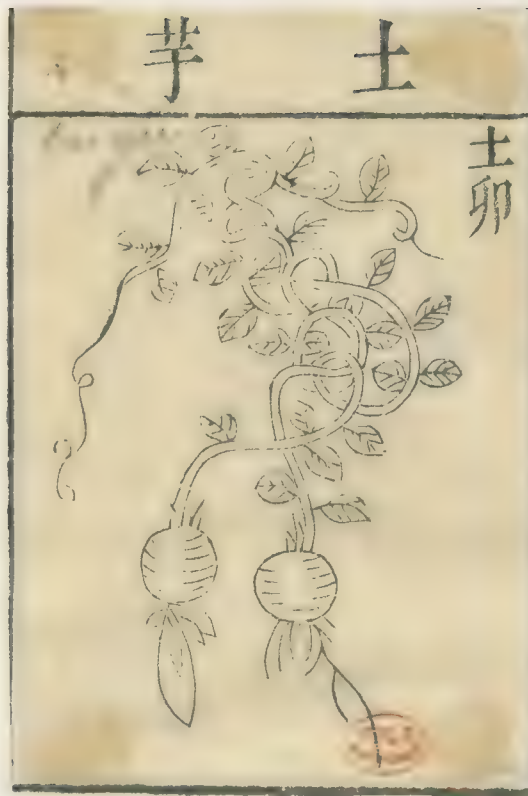 土芋
土卵